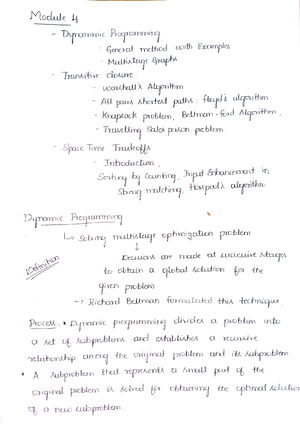 Module 4
- Dynamic Programming
- General method with Examples
- Multistage Graphs
- Transitive closure
- Warshall's Algorithm
- All pairs shortest paths: Floyd's algorithm
- Knapsack problem, Bellman-Ford Algorithm,
- Travelling Sales person problem
- Space Time Tradeoffs
- Introduction,
Sorting by Counting, Input Enhancement in
String matching, Horspool's algorithm
Dynamic Programming
↳ Solving multistage optimization problem
↓
Definition
Decisions are made at successive stages
to obtain a global solution for the
given problem
→ Richard Bellman formulated this technique.
Process: * Dynamic programming divides a problem into
a set of subproblems and establishes a recursive
relationship among the original problem and its subproblem
* A subproblem that represents a small part of the
original problem is solved for obtaining the optimal solution
of a new subproblem